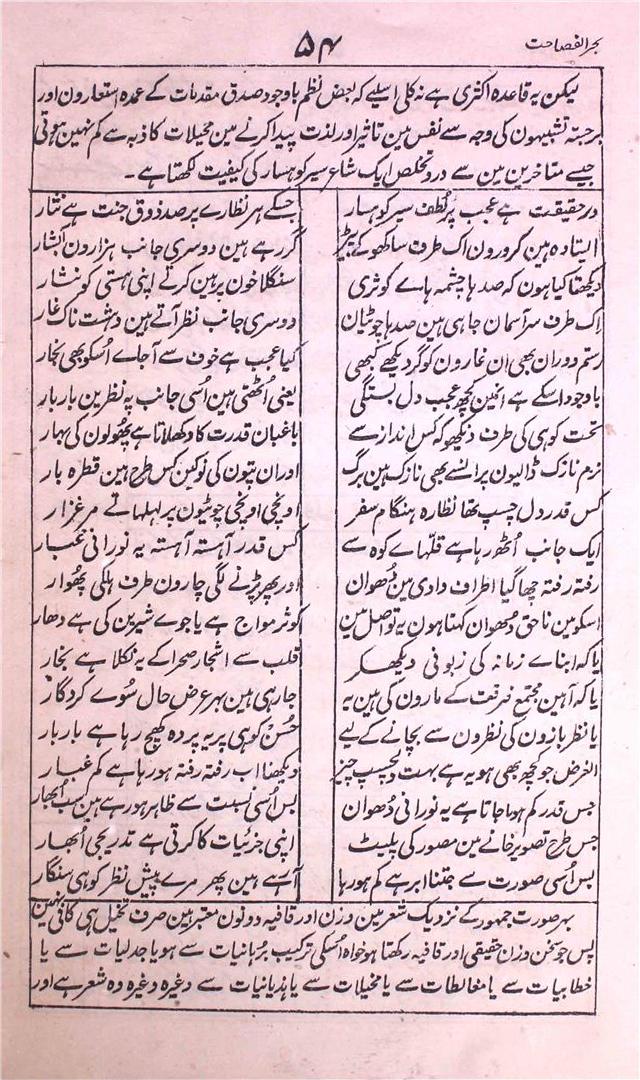 بحر الفصاحت
۵۴
لیکن یہ قاعدہ اکثری ہے نہ کلی اسلیے کہ بعض نظم باوجود صدق مقدمات کے عمدہ استعارون اور
برجستہ تشبیہون کی وجہ سے نفس مین تاثیر اور لذت پیدا کرنے مین مخیلات کاذبہ سے کم نہین ہوتی
جیسے متاخرین مین سے درد تخلص ایک شاعر سیر کوہسار کی کیفیت لکھتا ہے۔
درحقیقت ہے عجب پر لطف سیر کوہسار جسکے ہر نظارے پر صد ذوق جنت ہے نثار
ایستادہ ہین کرورون اک طرف ساکھو کے پیڑ گر رہے ہین دوسری جانب ہزارون آبشار
دیکھتا کیا ہون کہ صدہا چشمہ ہاے کوثری سنگلاخون پر ہین کرتے اپنی ہستی کو نثار
اک طرف سر آسمان جا ہی ہین صدہا چوٹیان دوسری جانب نظر آتے ہین دہشت ناک غار
رستم دوران بھی ان غارون کو گر دیکھے کبھی کیا عجب ہے خوف سے آجاے اُسکو بھی بخار
باوجود اسکے ہے انہین کچھ عجب دل بستگی یعنی اُٹھتی ہین اُسی جانب یہ نظرین بار بار
تحت کوہی کی طرف دیکھو کہ کس انداز سے باغبان قدرت کا دکھلاتا ہے پھولون کی بہار
نرم نازک ڈالیون پر انسے بھی نازک ہین برگ اور ان پتون کی نوکین کس طرح ہین قطرہ بار
کس قدر دل چسپ تھا نظارہ ہنگام سفر اونچی اونچی چوٹیون پر لہلہاتے مرغزار
ایک جانب اُٹھ رہا ہے قلہاے کوہ سے کس قدر آہستہ آہستہ یہ نورانی غبار
رفتہ رفتہ چھا گیا اطراف وادی مین دھوان اور پھر پڑنے لگی چارون طرف ہلکی پھوار
اسکو مین ناحق دھوان کہتا ہون یہ تو اصل مین کوثر مواج ہے یا جوے شیرین کی ہے دھار
یا کہ ابناے زمانہ کی زبونی دیکھکر قلب سے اشجار صحرا کے یہ نکلا ہے بخار
یا کہ آہین مجتمع فرقت کے مارون کی ہین یہ جا رہی ہین بہر عرض حال سُوے کردگار
یا نظر بازون کی نظرون سے بچانے کے لیے حُسن کوہی پر یہ پردہ کھچ رہا ہے بار بار
الغرض جو کچھ بھی ہو یہ ہے بہت دلچسپ چیز دیکھنا اب رفتہ رفتہ ہو رہا ہے کم غبار
جس قدر کم ہوتا جاتا ہے یہ نورانی دھوان بس اُسی نسبت سے ظاہر ہو رہے ہین سب اشجار
جس طرح تصویر خانے مین مصور کی پلیٹ اپنی جزئیات کا کرتی ہے تدریجی اُبھار
بس اُسی صورت سے جتنا ابر ہے کم ہو رہا آ رہے ہین پھر مرے پیش نظر کوہی سنگار
بہر صورت جمہور کے نزدیک شعر مین وزن اور قافیہ دونون معتبر ہین صرف تخیل ہی کافی نہین
پس جو سخن وزن حقیقی اور قافیہ رکھتا ہو خواہ اُسکی ترکیب برہانیات سے ہو یا جدلیات سے یا
خطابیات سے یا مغالطات سے یا مخیلات سے یا ہذیانیات سے وغیرہ وغیرہ وہ شعر ہے اور